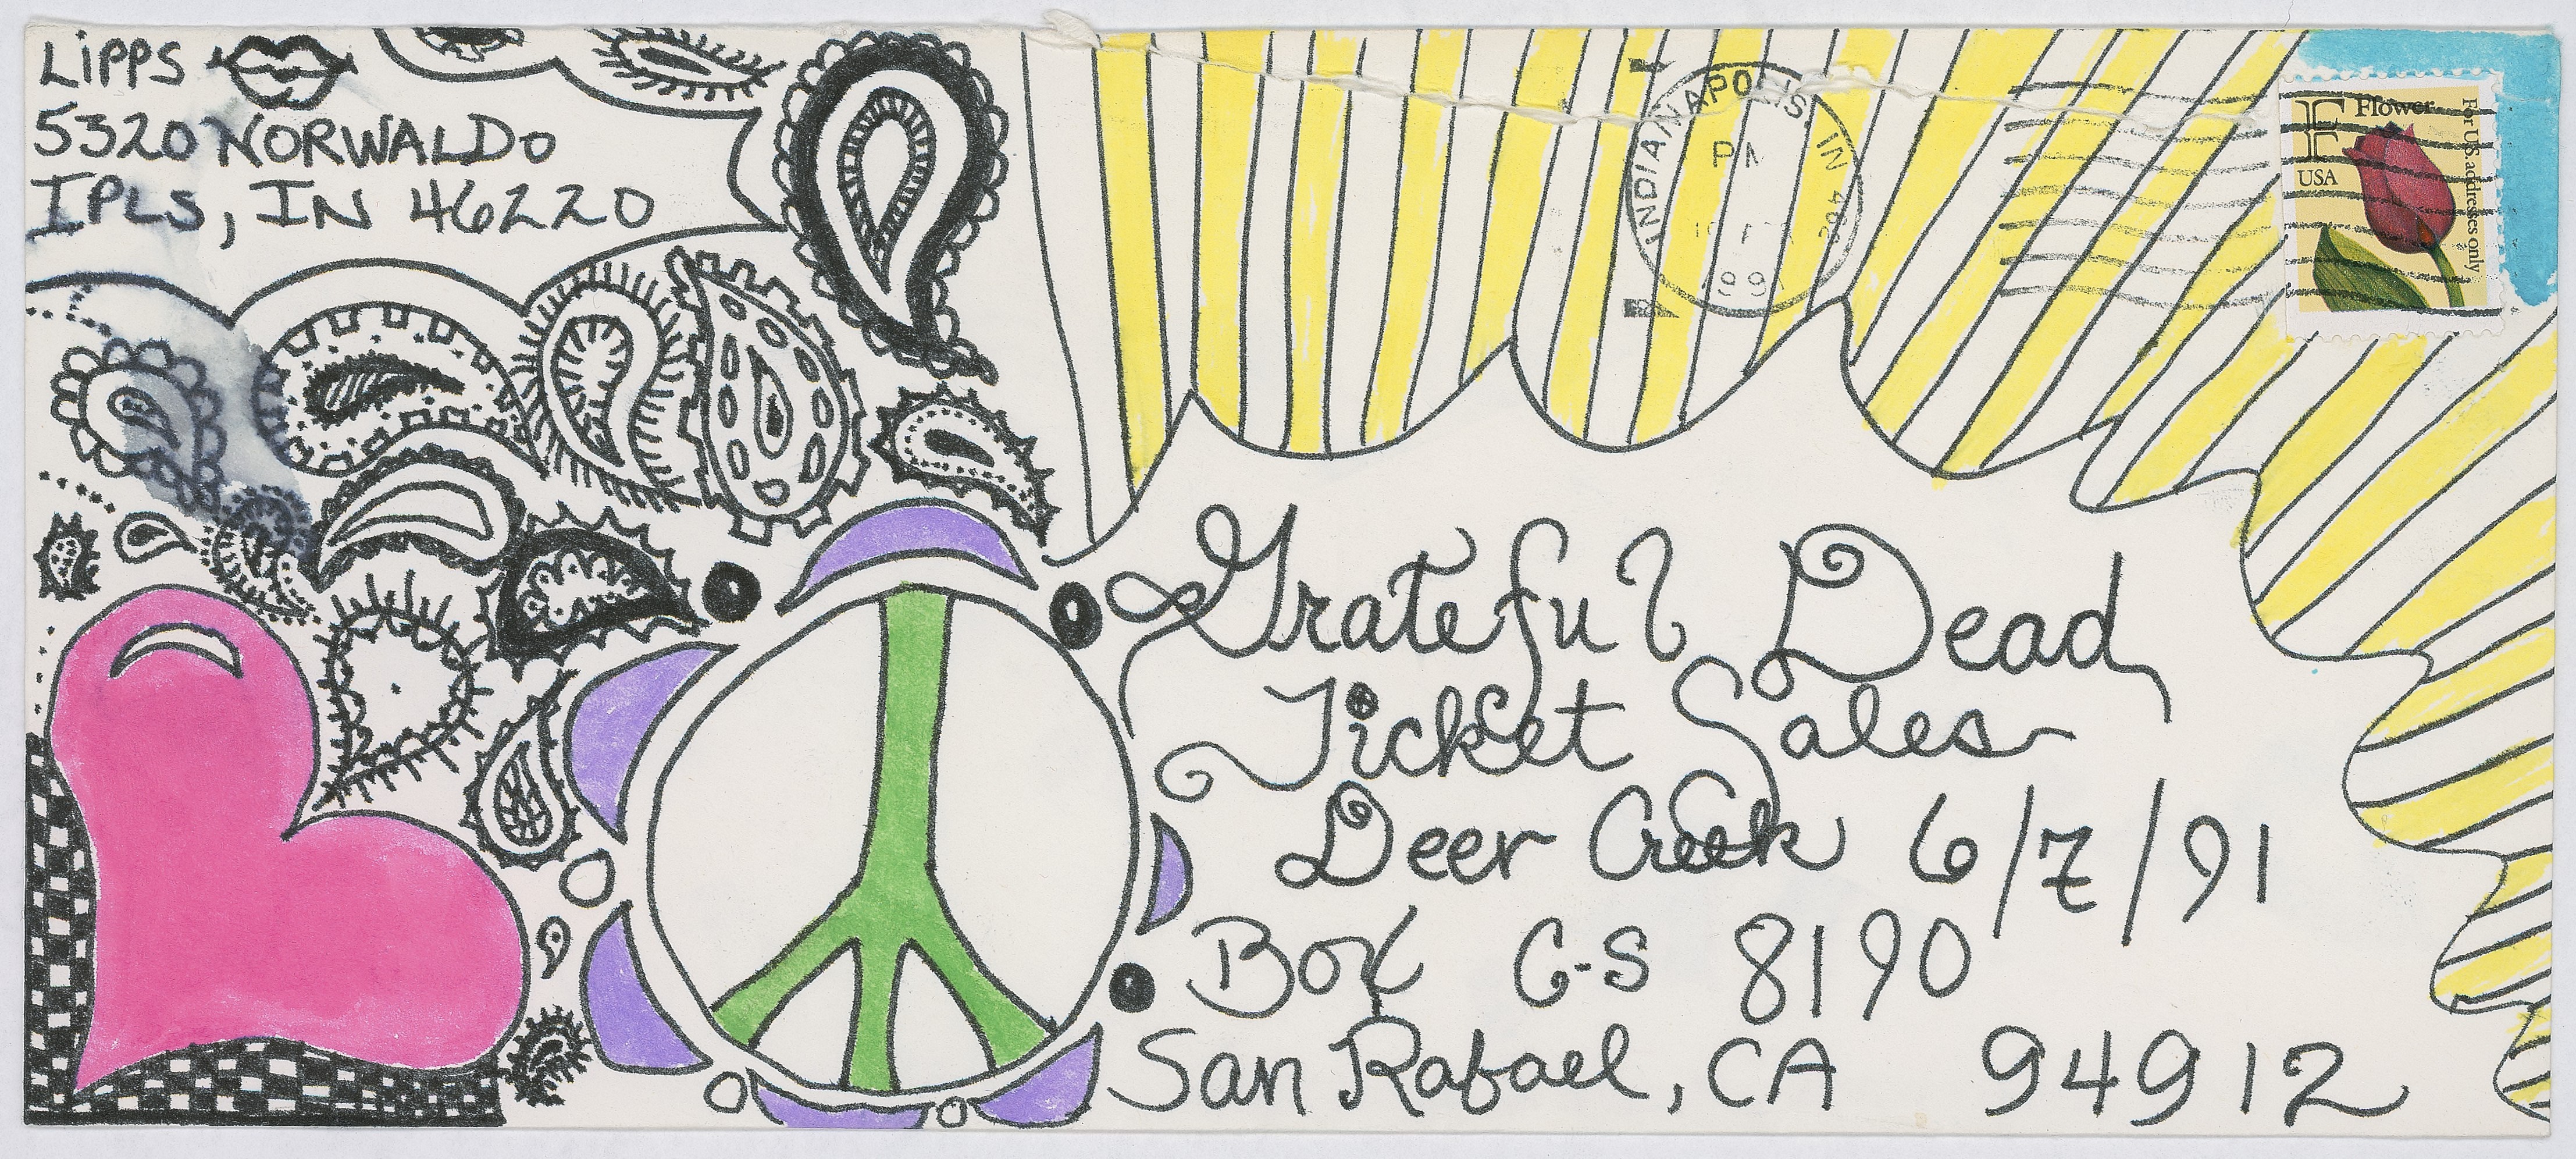 LiPPS
5320 NORWALDO
IPLS, IN 46220
INDIANAPOLIS, IN 462
PM
199
F Flower
USA
For U.S. addresses only
Grateful Dead
Ticket Sales
Deer Creek 6/7/91
Box C-S 8190
San Rafael, CA 94912